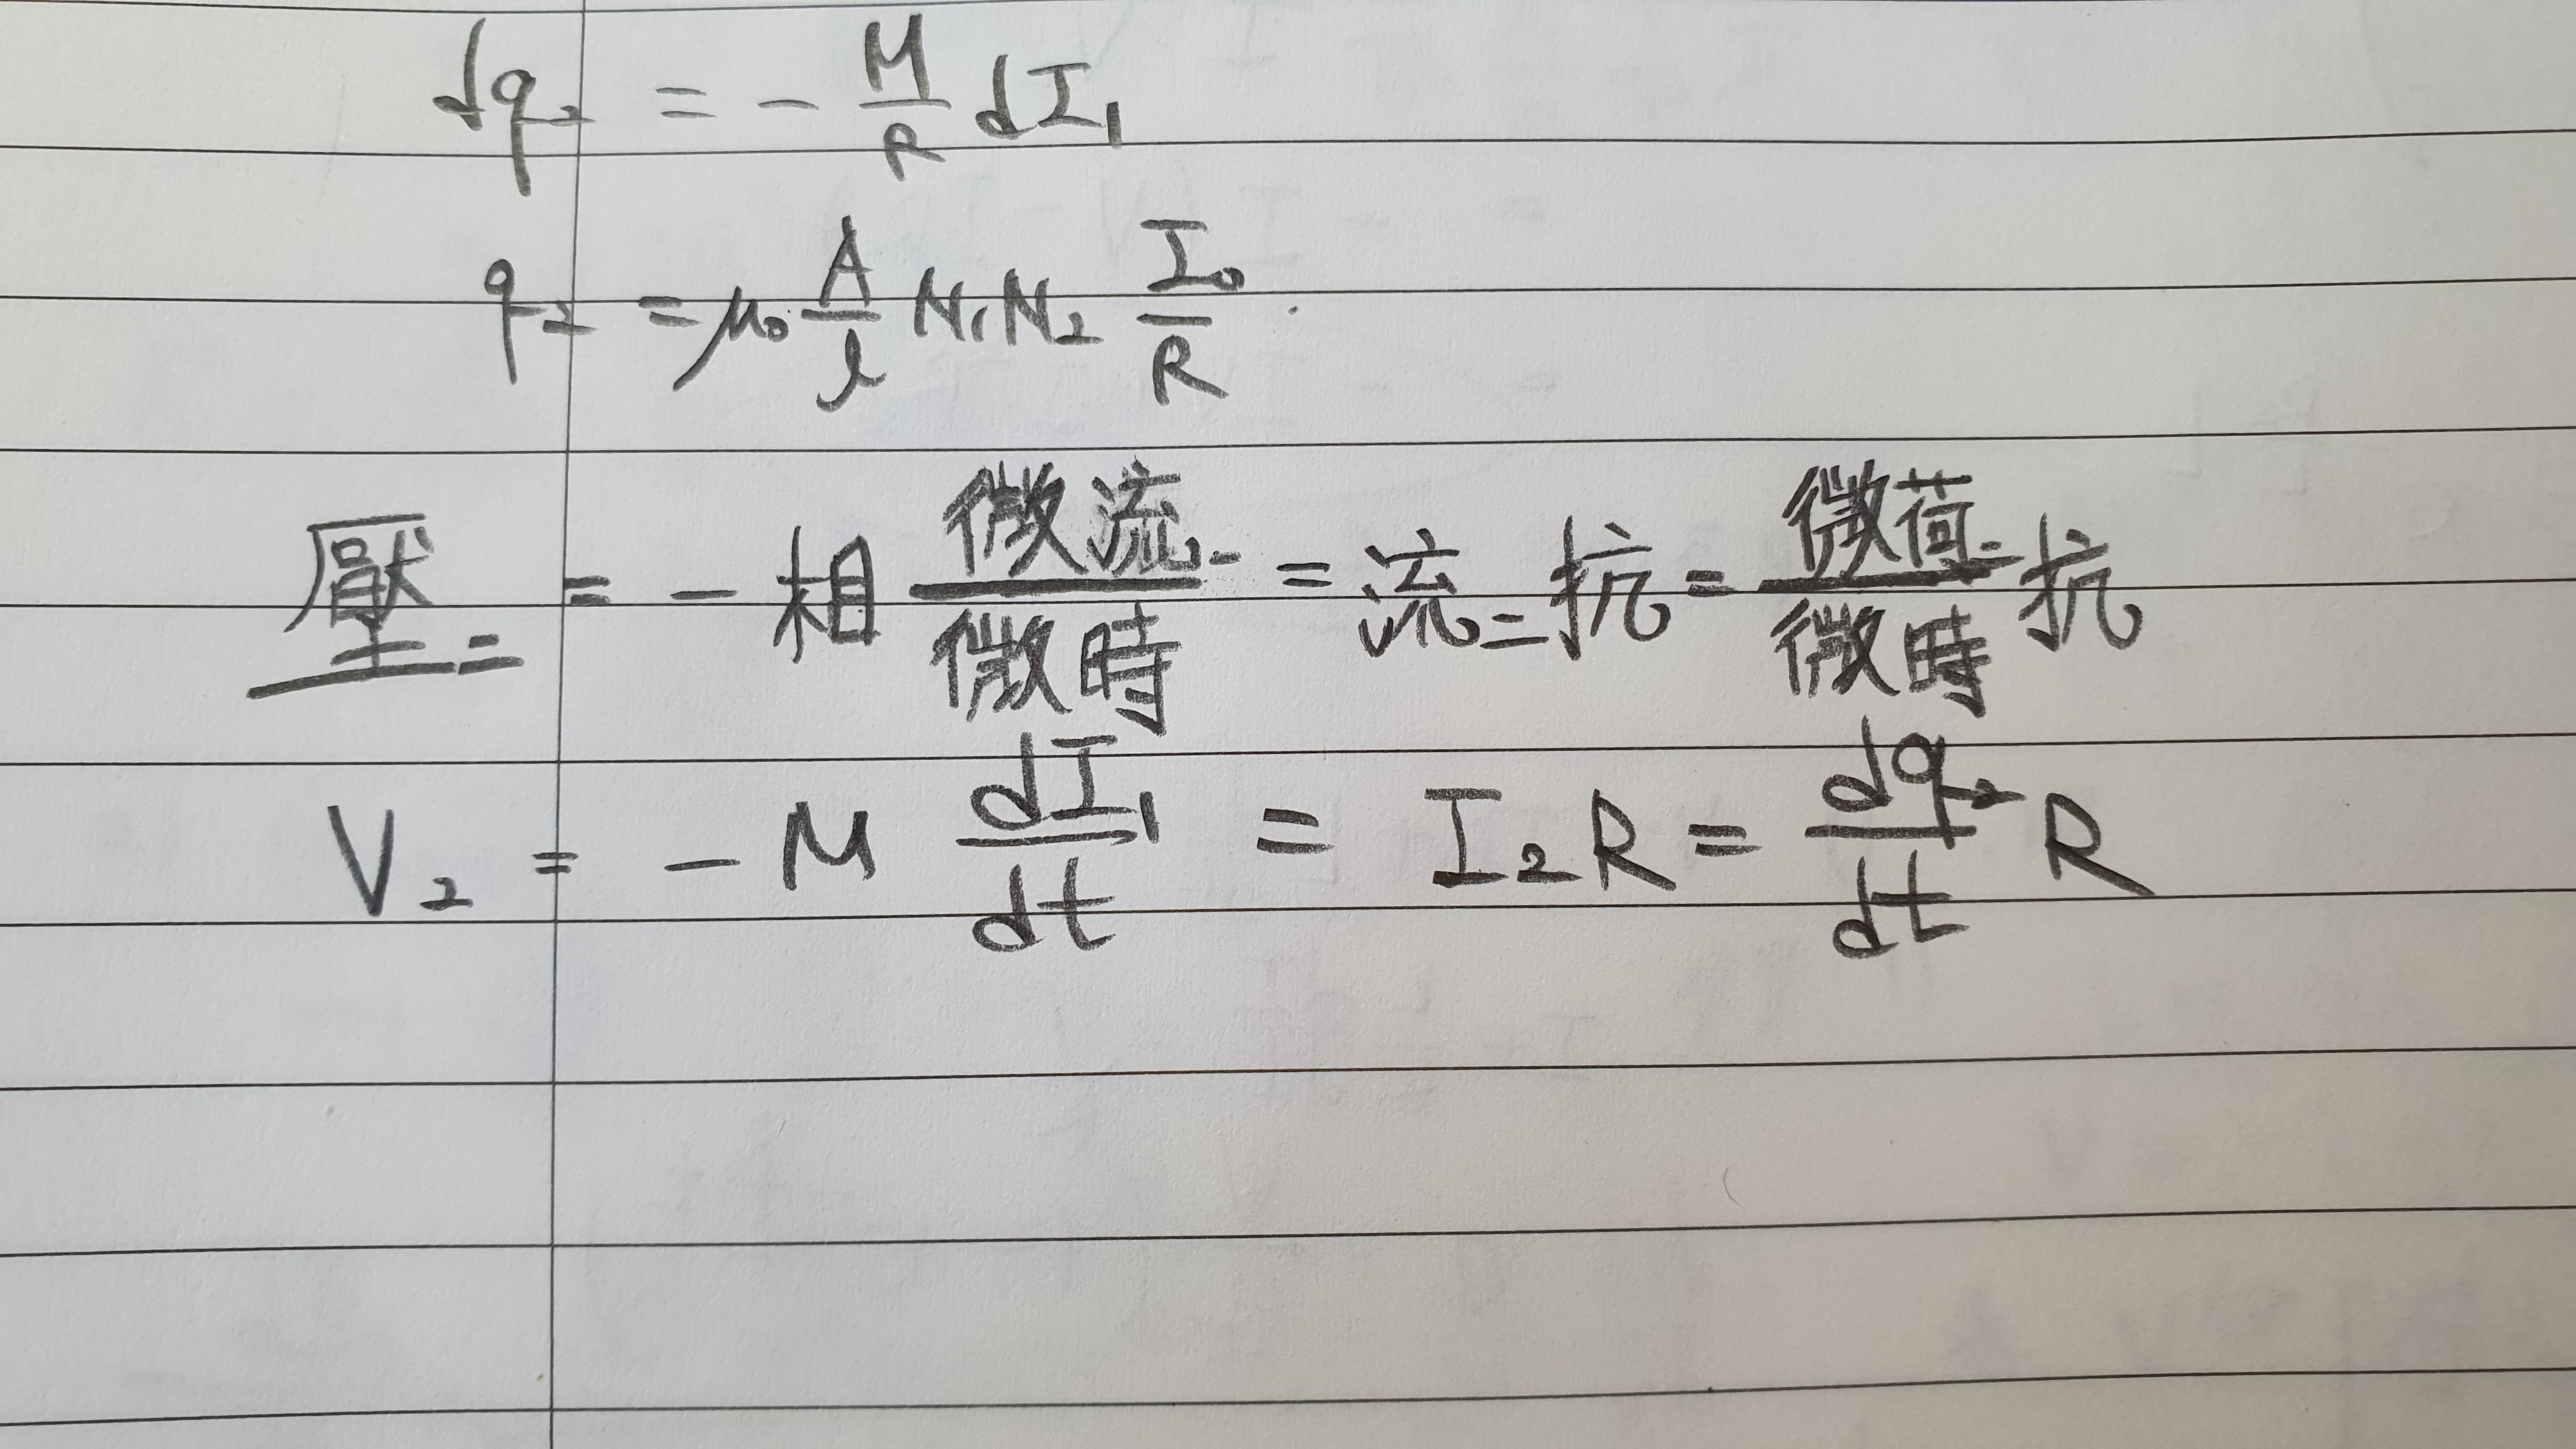 dq₂ = - M/R dI₁
q₂ = μ₀ A/l N₁N₂ I₀/R
壓二 = - 相 微流一/微時 = 流二抗 = 微荷二/微時 抗
V₂ = - M dI₁/dt = I₂R = dq₂/dt R